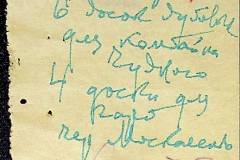 6 досок дубових
для комбайна
Чудного
4 доски для
каро
пер Москаленко